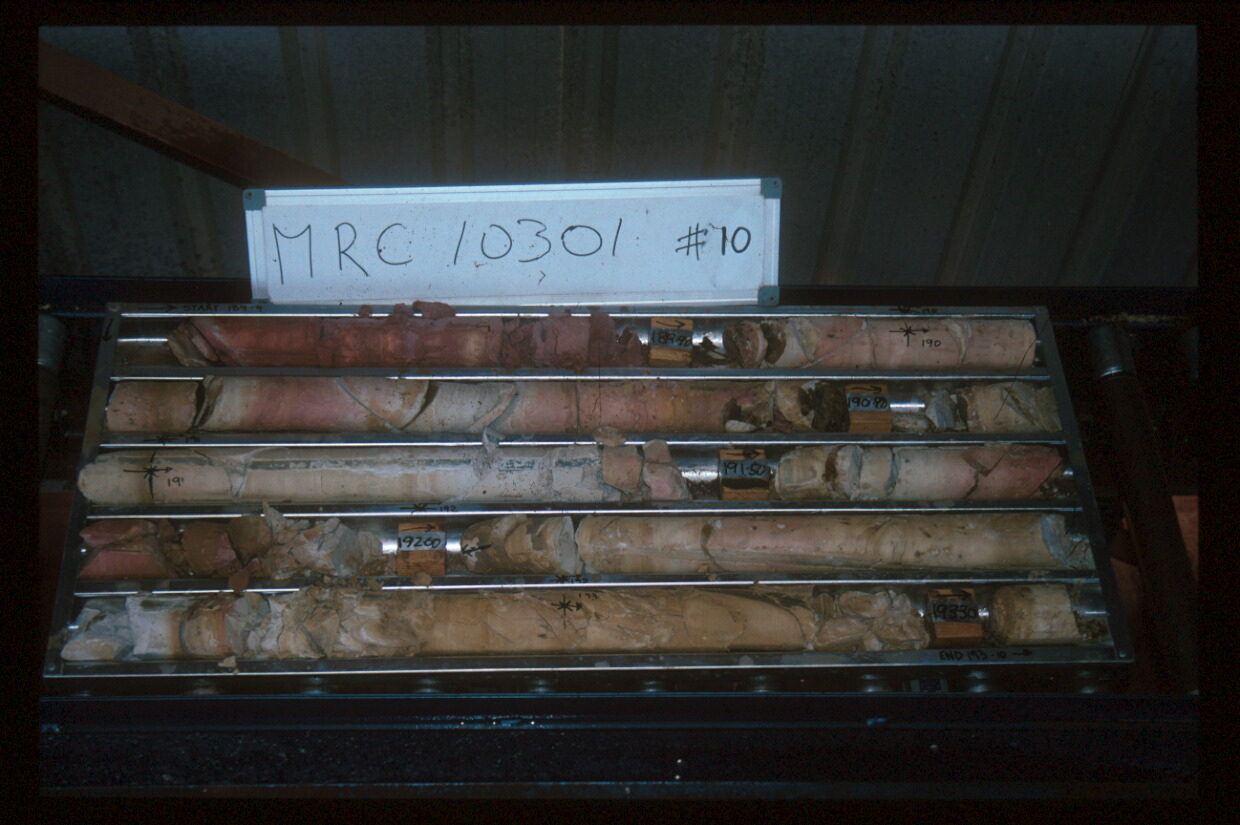 MRC 10301 #10
START 189.4
190
190.80
191
191.50
192
192.00
193
193.30
END 193.10